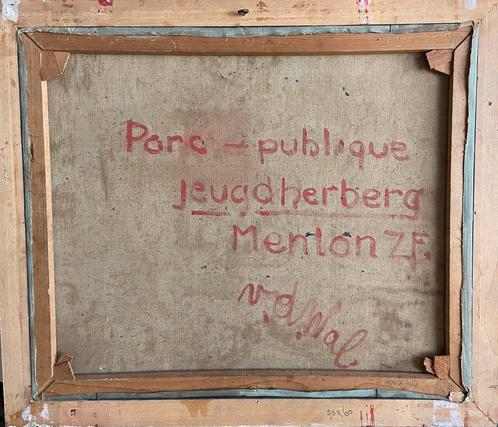 Parc - publique
jeugdherberg
Menton Z.F.
v.d. Wal.
50x60